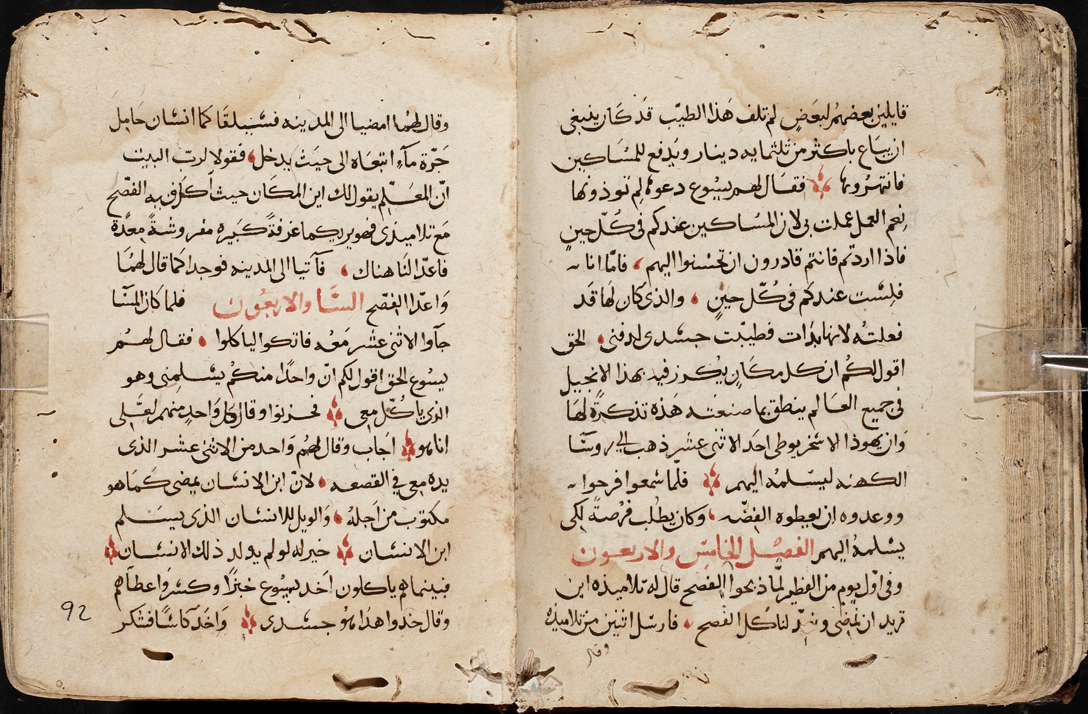 قايلين بعضهم لبعض لم تلف هذا الطيب قد كان ينبغى
ان يباع باكثر من تلثمايه دينار ويدفع للمساكين
فانتهروها فقال لهم يسوع دعوها لم تودونها
نعم العمل عملت بى لان المساكين عندكم فى كل حين
فاذا اردتم فانتم قادرون ان تحسنوا اليهم فاما انا
فلست عندكم فى كل حين والذى كان لها قد
فعلته لانها بدات فطيبت جسدى لدفنى الحق
اقول لكم ان كل مكان يكرز فيه بهذا الانجيل
فى جميع العالم ينطق بما صنعته هذه تذكرة لها
وان يهوذا الاسخريوطى احد الاثنى عشر ذهب الى روسا
الكهنه ليسلمه اليهم فلما سمعوا فرحوا
ووعدوه ان يعطوه الفضه وكان يطلب فرصة لكى
يسلمه اليهم الفصل الخامس والاربعون
وفى اول يوم من الفطير لما ذبحوا الفصح قال له تلاميذه اين
تريد ان نمضى ونعد لناكل الفصح فارسل اثنين من تلاميذه
وقا
وقال لهما امضيا الى المدينه فسيلقا كما انسان حامل
جرة ماء اتبعاه الى حيث يدخل فقولا لرب البيت
ان المعلم يقول لك اين المكان حيث اكل فيه الفصح
مع تلاميذى فهو يريكما غرفة كبيره مفروشة معدة
فاعدا لنا هناك فاتيا الى المدينه فوجدا كما قال لهما
واعدا الفصح السا والاربعون فلما كان المسا
جآوا الاثنى عشر معه فاتكوا لياكلوا فقال لهم
يسوع الحق اقول لكم ان واحدا منكم يسلمنى وهو
الذى ياكل معى فحزنوا وقال كل واحد منهم لعلى
انا هو اجاب وقال لهم واحد من الاثنى عشر الذى
يده معى فى القصعه لان ابن الانسان يمضى كما هو
مكتوب من اجله والويل للانسان الذى يسلم
ابن الانسان خير له لو لم يولد ذلك الانسان
فبينما هم ياكلون اخد يسوع خبزا وكسر واعطاهم
وقال خدوا هدا هو جسدى واخد كاسا فشكر
92